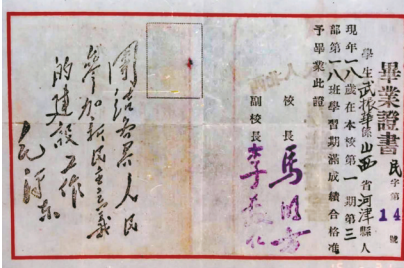 畢業證書
民字第14號
學生武振華係山西省河津縣人
現年一八歲在本校第一期第三
部第一八班學習期滿成績合格准
予畢業此證
校長 馬明方
副校長 李敷仁
團結各界人民
參加新民主主義
的建設工作
毛澤東